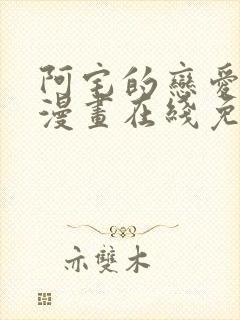 阿宅的戀愛
漫畫在綫免
亦雙木